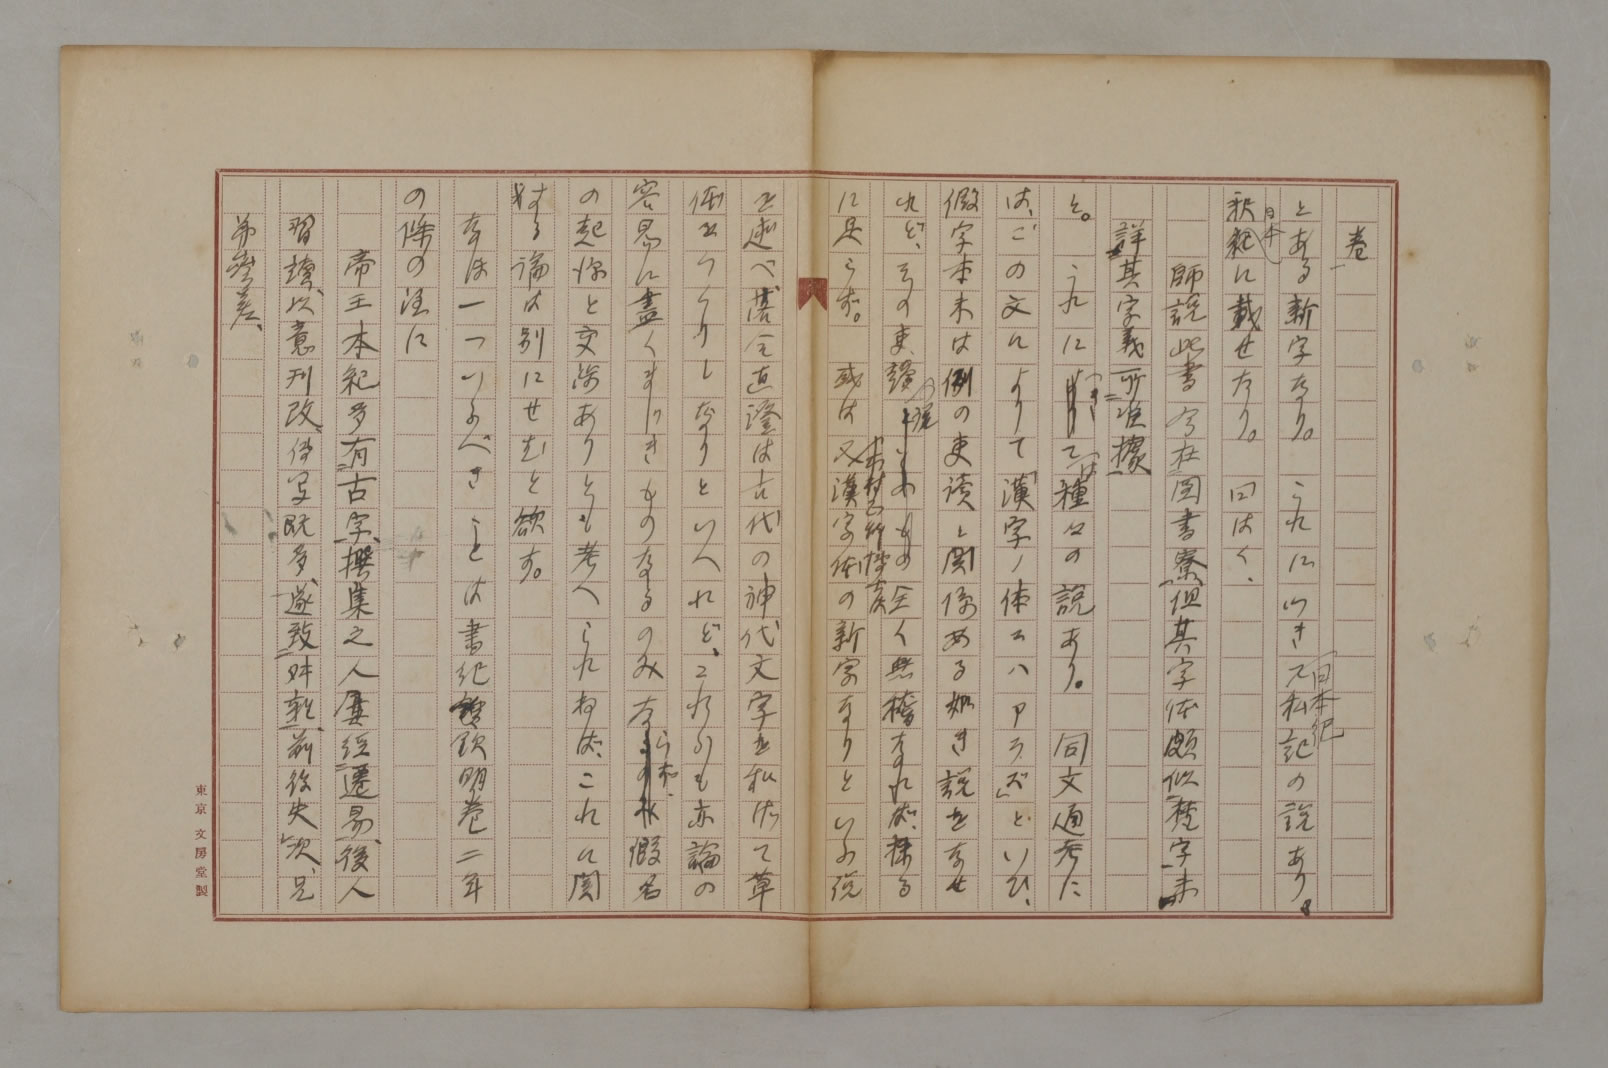 巻
とある新字なり。これにつきて日本紀私記の説あり。
釈日本紀に載せたり。曰はく、
師説此書今在図書寮、但其字体頗似梵字未
詳其字義所准據
と。これにつきては種々の説あり。同文通考に
は、「この文によりて漢字ノ体ニハアラズ」といひ、
假字本末は例の吏読に関係ある如き説をなせ
れど、その吏読の説全く無稽なれば、採る
に足らず。或は又漢字体の新字なりといふ説
を述べ、落合直澄は古代の神代文字を私けて草
体をつくりしなりといへれど、これらも亦論の
容易に盡くすべきものなるのみならず、假名
の起源と交渉ありとも考へられねば、これに関
する論は別にせむと欲す。
なほ一ついふべきことは書紀欽明巻二年
の條の注に
帝王本紀多有古字、撰集之人屢経遷易、後人
習読、以意刊改、伝写既多、遂致舛雑、前後失次、兄
弟参差、
東京 文房堂製